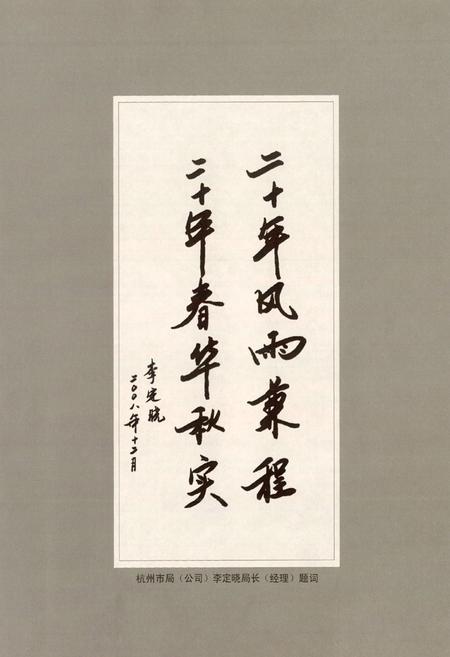 二十年风雨兼程
二十年春华秋实
李定晓
二〇〇八年十二月
杭州市局（公司）李定晓局长（经理）题词